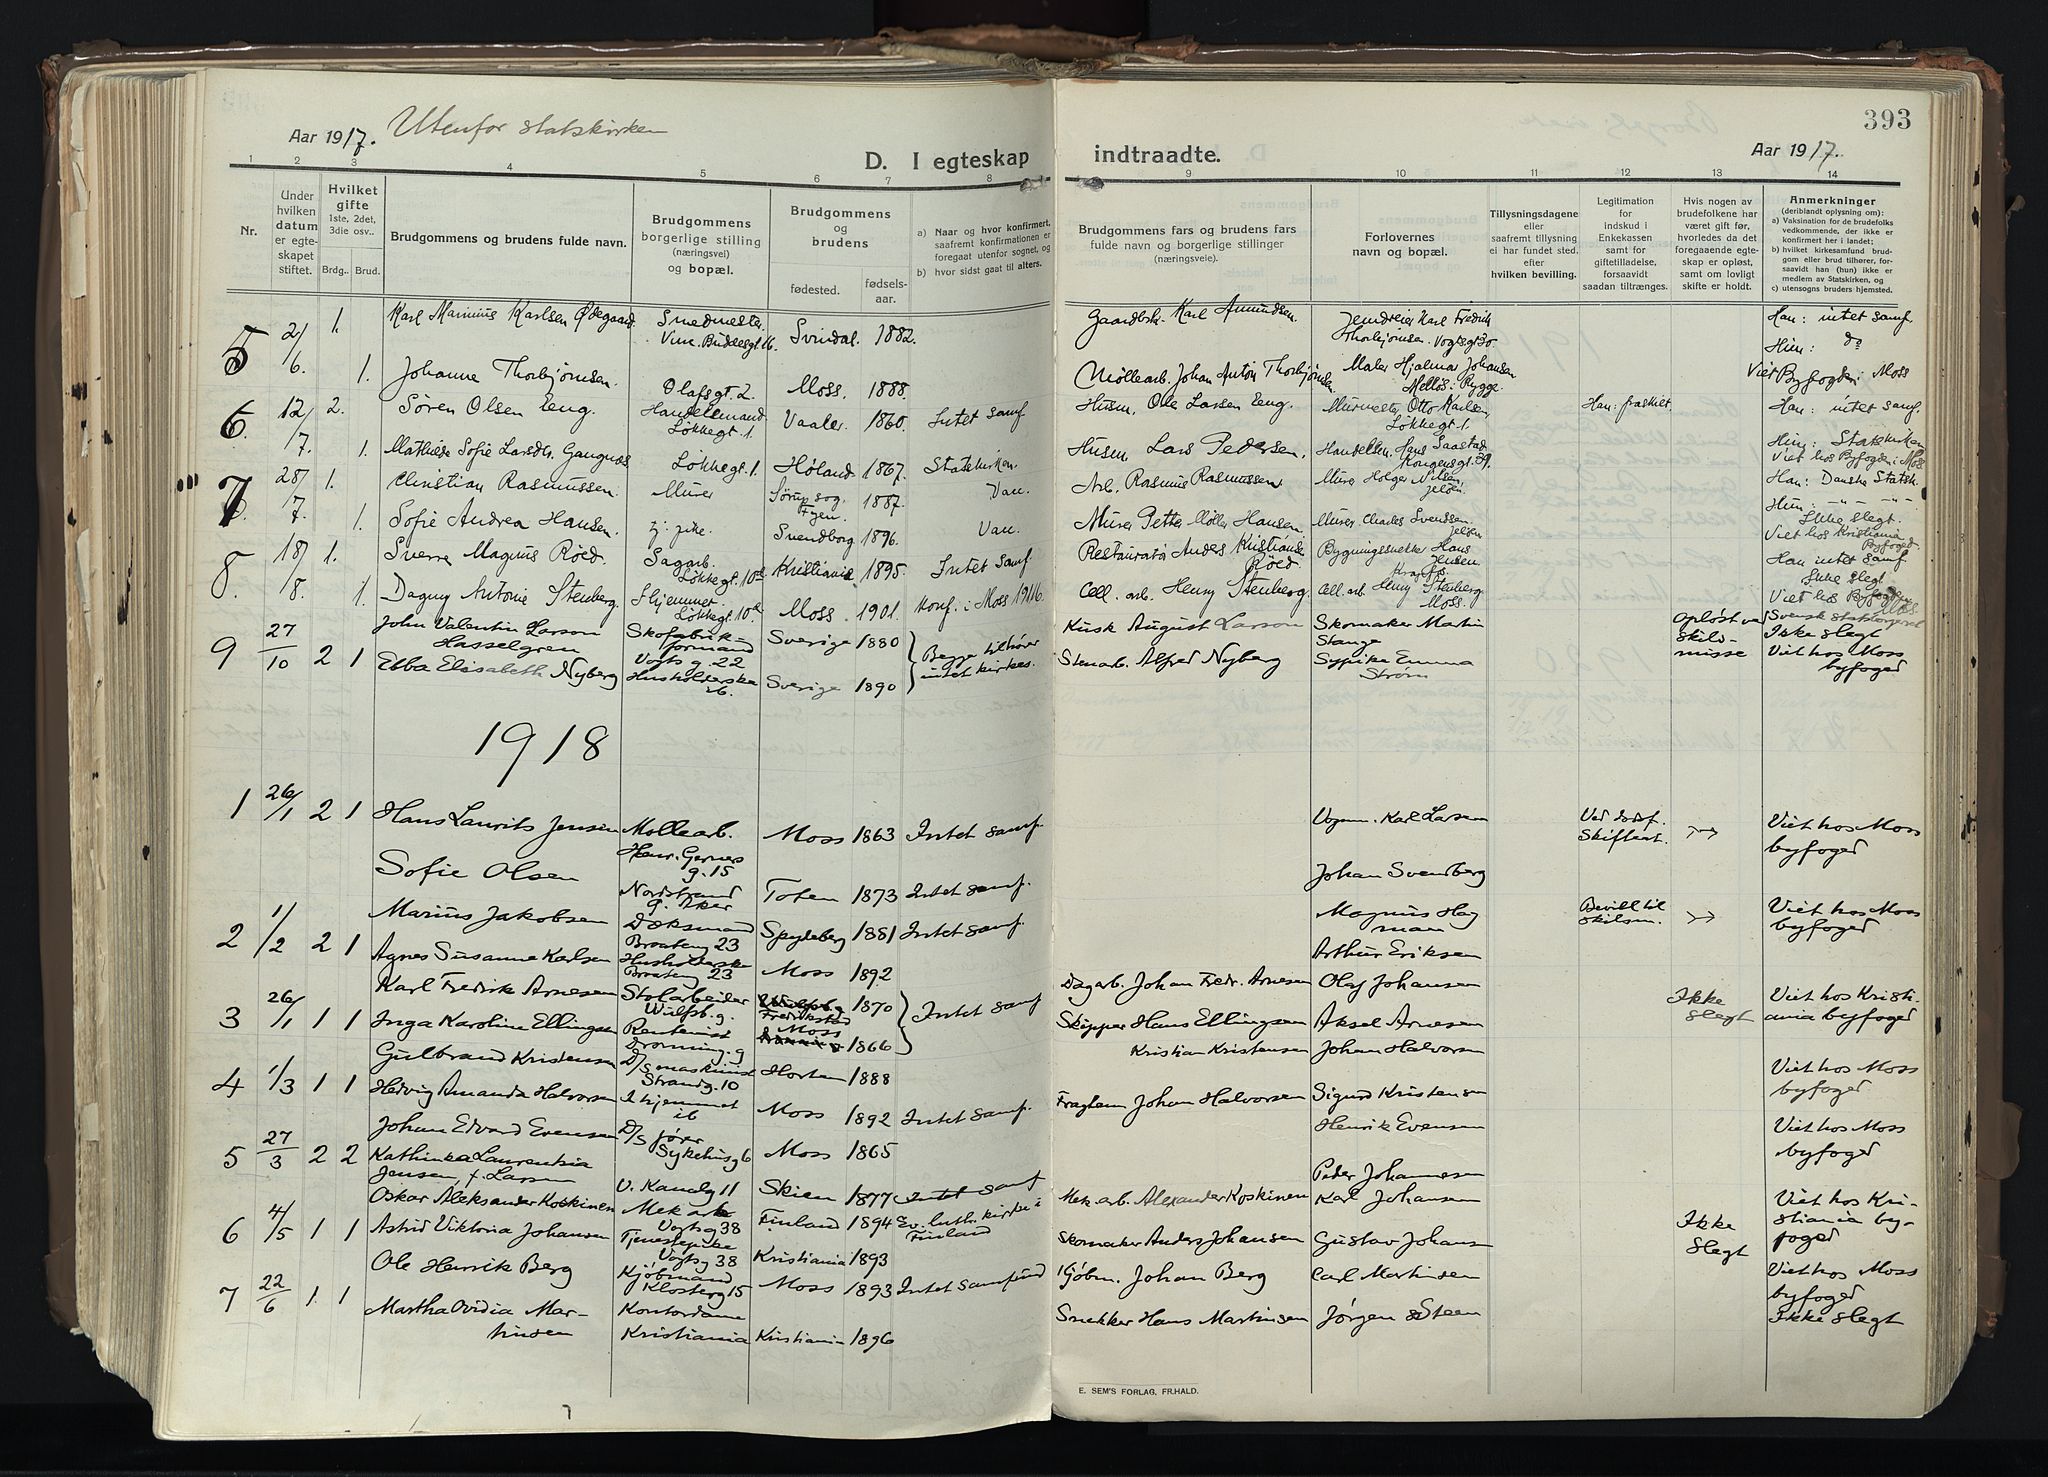 Aar 1917. Utenfor statskirken
D. I egteskap
1 2 3 4 5 6 7 8
Nr.
Under hvilken datum er egteskapet stiftet.
Hvilket gifte 1ste, 2det, 3die osv..
Brdg.. Brud.
Brudgommens og brudens fulde navn.
Brudgommens borgerlige stilling (næringsvei) og bopæl.
Brudgommens og brudens
fødested. fødselsaar.
a) Naar og hvor konfirmert, saafremt konfirmationen er foregaat utenfor sognet, og
b) hvor sidst gaat til alters.
5 2/6. 1. Karl Marinius Karlsen Ødegaard Smedmester. Svindal. 1882.
1. Johanne Thorbjørnsen. Olafsgt. 2. Moss. 1888.
6. 12/7. 2. Søren Olsen Eeng. Handelsmand. Løkkegt. 1. Vaaler. 1860. Intet samf.
1. Mathilde Sofie Larsdtr. Gangnæs. Løkkegt. 1. Høland 1867. Statskirken.
7 28/7. 1. Christian Rasmussen. Murer Sørup sog. Fyen. 1887. Van.
1. Sofie Andrea Hansen. Svendborg 1896. Van.
8. 18/8. 1. Sverre Magnus Røed. Sagarb. Løkkegt. 10 Kristiania 1895. Intet samf.
1. Dagny Antonie Stenberg. Hjemmet. Løkkegt. 10 Moss. 1901. Konf. i Moss 1916.
9 27/10 2 1 John Valentin Larson Hasselgren Skofabrikformand Vogts g. 22 Sverige 1880 Begge tilhører intet kirkes.
Ebba Elisabeth Nyberg Husholderske ib. Sverige 1890
1918
1 26/1 2 1 Hans Laurits Jensen Møllearb. Henr. Gerners g. 15 Moss 1863 Intet samf.
Sofie Olsen Nordstrand g. Aker Toten 1873 Intet samf.
2 1/2 2 1 Marius Jakobsen Dæksmand Braateng 23 Spydeberg 1881 Intet samf.
Agnes Susanne Karlsen Husholderske Braateng 23 Moss 1892
3 26/1 1 1 Karl Fredrik Arnesen Stolarbeider Wulfsb. g. Fredrikstad 1870 Intet samf
Inga Karoline Ellingsen Rentenist Dronning. g Moss 1866
4 1/3 1 1 Gulbrand Kristensen D/s maskinist Strandg. 10 Horten 1888
Hedvig Amanda Halvorsen I hjemmet ib Moss 1892 Intet samf.
5 27/3 2 2 Johan Edvard Evensen D/s fører Sykehusg 6 Moss 1865
Kathinka Laurentzia Jensen, f. Larsen V. Kanalg 11 Skien 1877 Intet samf
6 4/5 1 1 Oskar Aleksander Koskinen Mek arb Vogtsg 38 Finland 1894 Ev. luth. kirke i Finland
Astrid Viktoria Johansen Tjenestepike Vogtsg 38 Kristiania 1893
7 22/6 1. 1 Ole Henrik Berg Kjøbmand Klosterg 15 Moss 1893 Intet samfund
Martha Ovidia Martinsen Kontordame Kristiania Kristiania 1896
393
indtraadte. Aar 1917.
9 10 11 12 13 14
Brudgommens fars og brudens fars fulde navn og borgerlige stillinger (næringsveie).
Forlovernes navn og bopæl.
Tillysningsdagene eller saafremt tillysning ei har fundet sted. efter hvilken bevilling.
Legitimation for indskud i Enkekassen samt for giftetilladelse, forsaavidt saadan tiltrænges.
Hvis nogen av brudefolkene har været gift før, hvorledes da det foregaaende egteskap er opløst, samt om lovligt skifte er holdt.
Anmerkninger (deriblandt oplysning om):
a) Vaksination for de brudefolks vedkommende, der ikke er konfirmert her i landet;
b) hvilket kirkesamfund brudgom eller brud tilhører, forsaavidt han (hun) ikke er medlem av Statskirken, og
c) utensogns bruders hjemsted.
Gaardbr. Karl Amundsen. Jerndreier Karl Fredrik Thorbjørnsen. Vogtsgt 30. Han: intet samf. Hun: do
Møllearb. Johan Anton Thorbjørnsen. Maler Hjalmar Johansen Melløs i Rygge. Viet Byfogden i Moss
Husm. Ole Larsen Eeng. Murmester Otto Karlsen, Løkkegt. 1. Han: fraskilt. Han: intet samf.
Husm. Lars Pedersen. Handelsm. Hans Saastad Kongensgt. 39. Hun: Statskirken Viet hos Byfogden i Moss
Arb. Rasmus Rasmussen Murer Holger Nilsen, Jeløen. Han: Danske Statsk. Hun: -"- -"-
Murer Petter Møller Hansen. Murer Charles Svenssen. Jeløen Ikke slegt. Viet hos Kristiania Byfoged.
Restauratør Anders Kristiansen Røed. Bygningssnekker Hans Jensen Han intet samf. Ikke slegt
Cell. arb. Henry Stenberg. Cell. arb. Henry Stenberg Moss. Viet hos Byfogden Moss.
Kusk August Larson Skomaker Martin Stange opløst ved skilsmisse Svensk statsborgerret Ikke slegt
Stenarb. Alfred Nyberg Sypike Emma Strøm Viet hos Moss byfoged
Vognm. Karl Larsen Ved dødsf. Skifteat. Viet hos Moss byfoged
Johan Svendberg
Magnus Hagman Bevill til skilsm. Viet hos Moss byfoged
Arthur Eriksen
Dagarb. Johan Fredr. Arnesen Olaf Johansen Ikke slegt Viet hos Kristiania byfoged
Skipper Hans Ellingsen Aksel Arnesen
Kristian Kristensen Johan Halvorsen Viet hos Moss byfoged
Fragtem Johan Halvorsen Sigurd Kristensen
Henrik Evensen Viet hos Moss byfoged
Peder Johannesen
Mek arb. Alexander Koskinen Karl Johansen Ikke slegt Viet hos Kristiania byfoged
Skomaker Anders Johansen Gustav Johans
Kjøbm. Johan Berg Carl Martinsen Viet hos Moss byfoged
Snekker Hans Martinsen Jørgen Steen Ikke slegt
E. SEM'S FORLAG, FR.HALD.